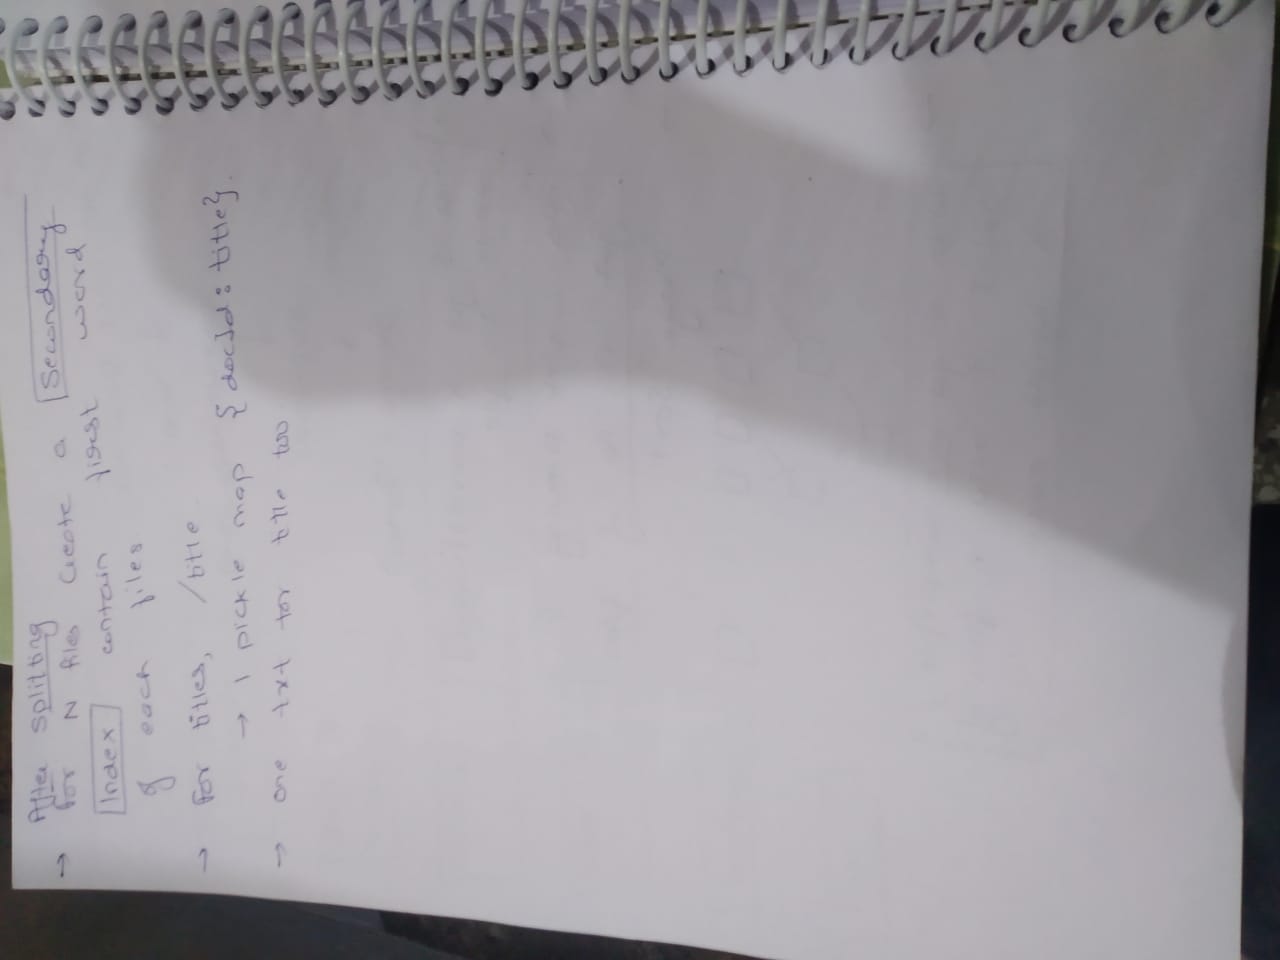 After splitting
→ for N files create a Secondary
Index contain first word
of each files
→ for titles, /title
→ 1 pickle map {docId : title}.
→ one txt for title too